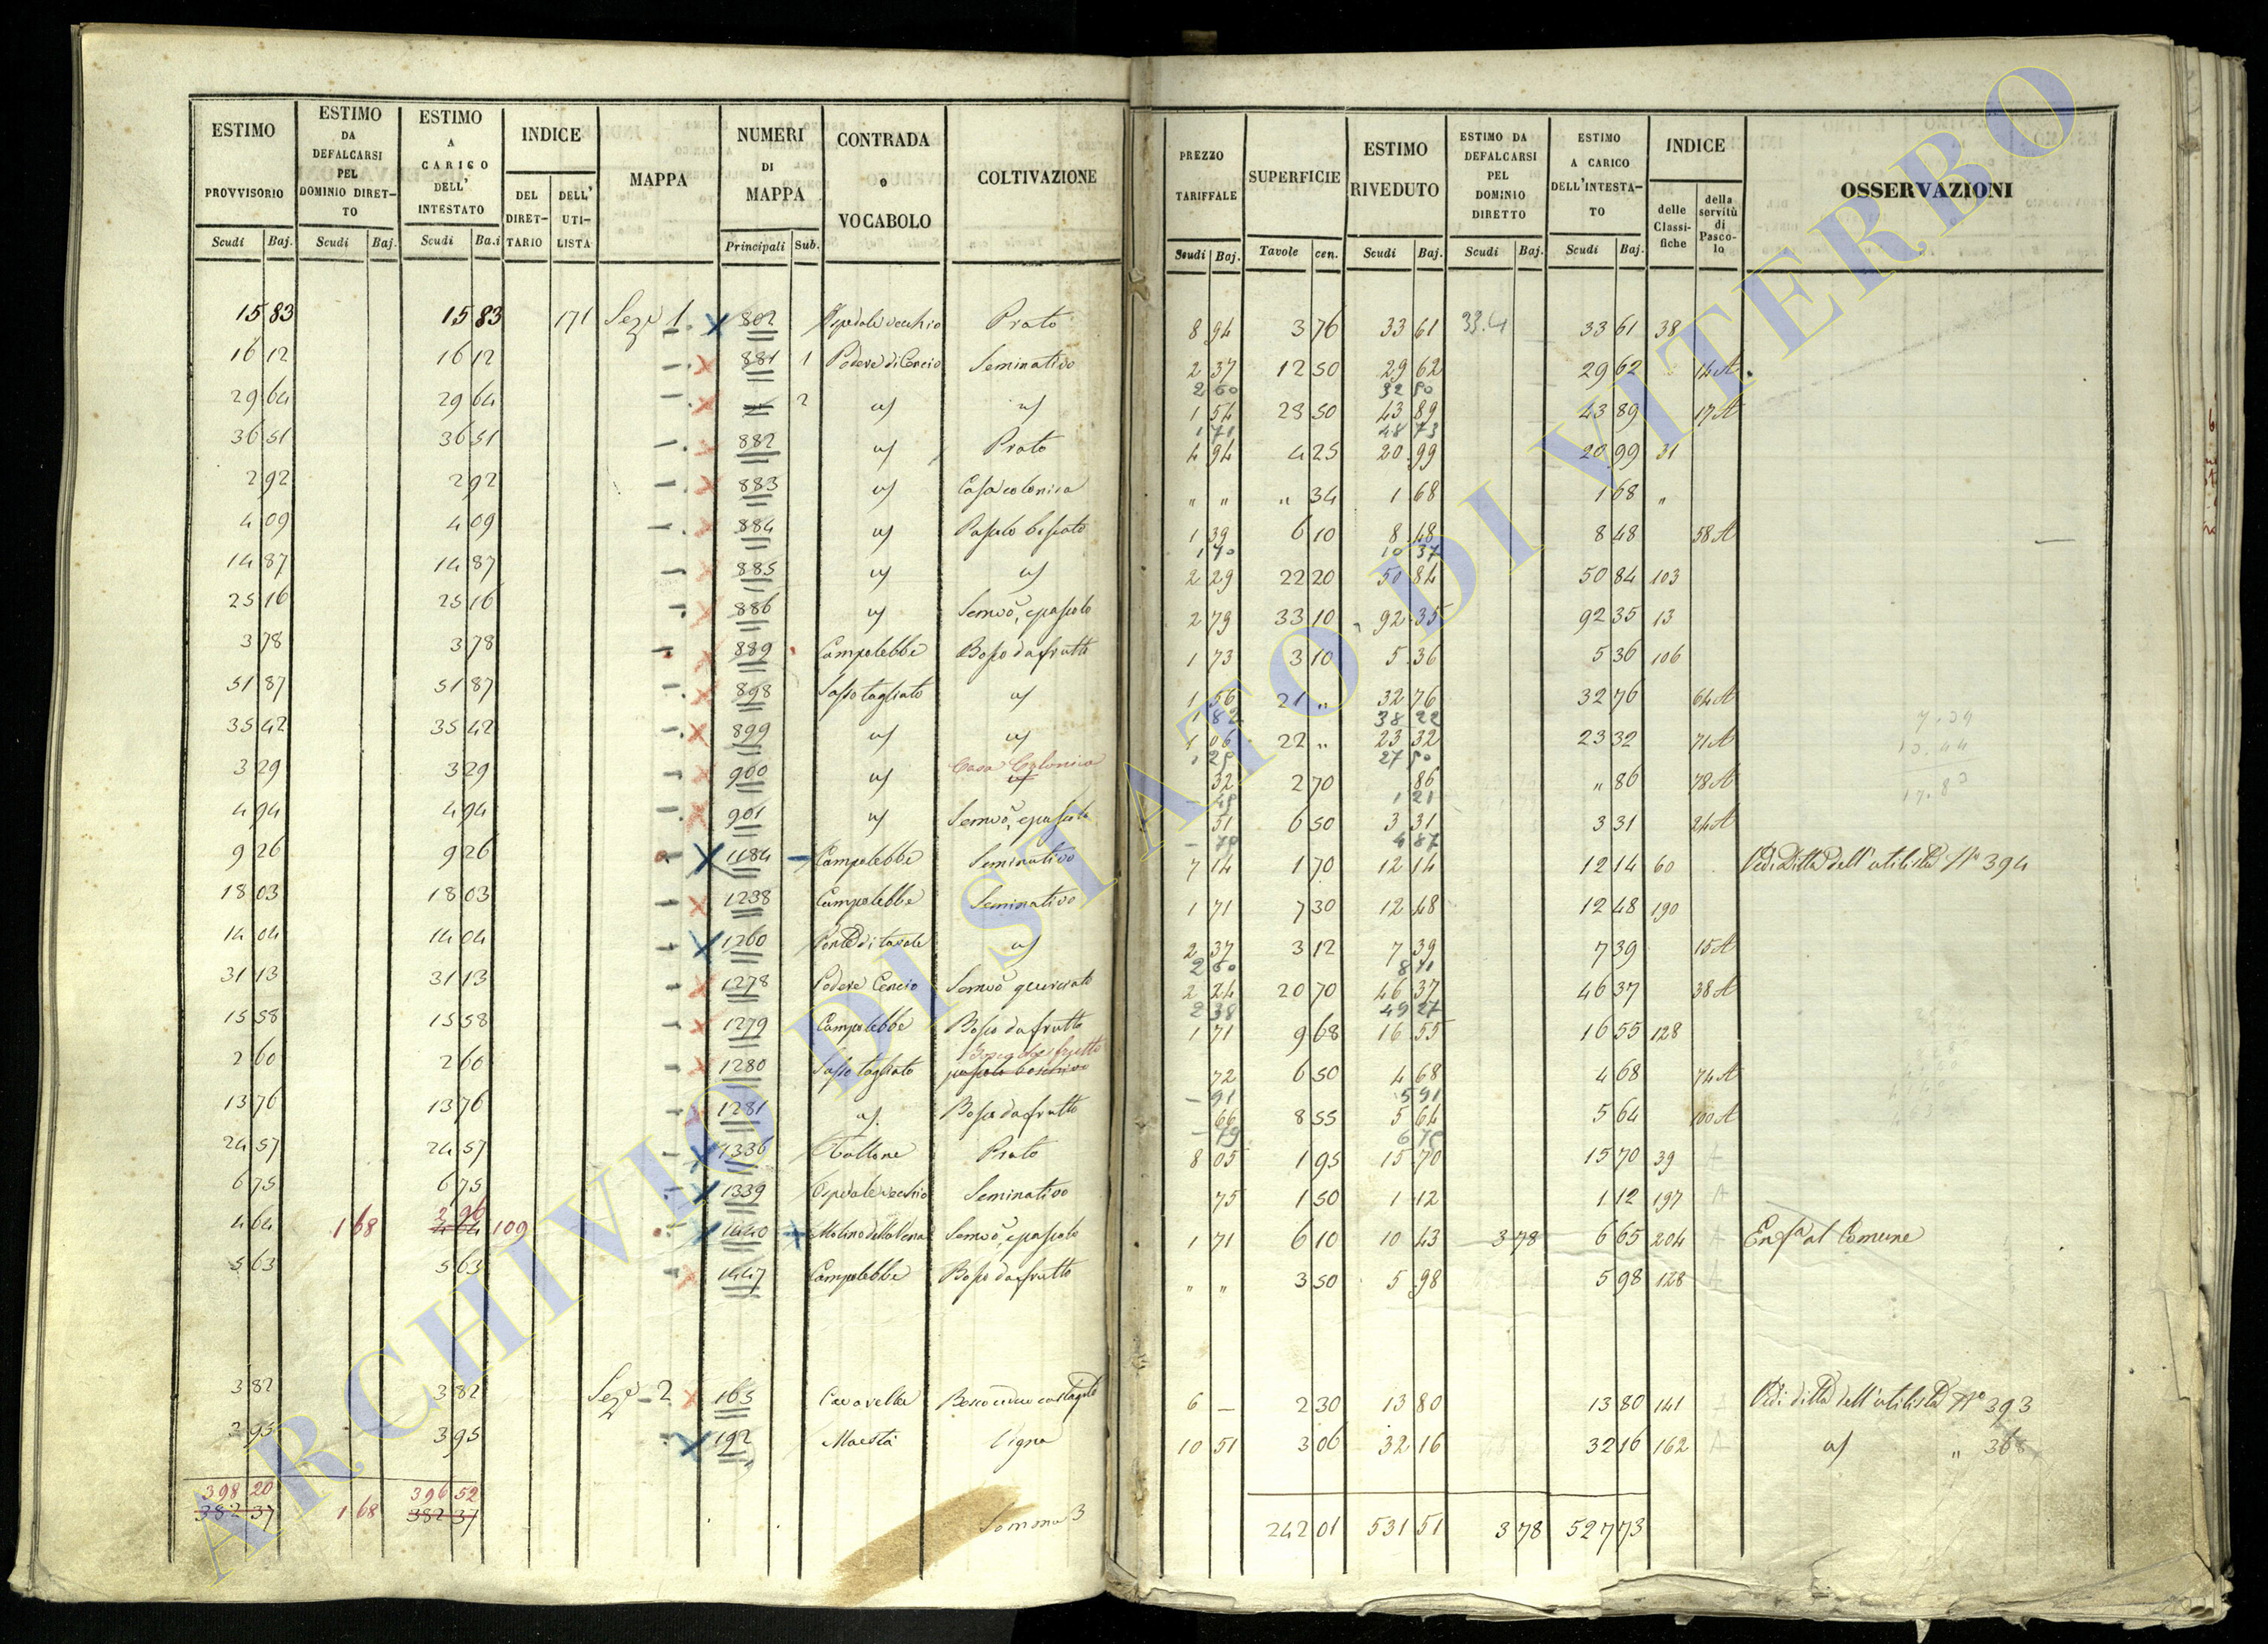 ESTIMO PROVVISORIO Scudi Baj.
ESTIMO DA DEFALCARSI PEL DOMINIO DIRETTO Scudi Baj.
ESTIMO A CARICO DELL' INTESTATO Scudi Ba.i
INDICE DEL DIRETTARIO DELL' UTILISTA
MAPPA
NUMERI DI MAPPA Principali Sub.
CONTRADA o VOCABOLO
COLTIVAZIONE
PREZZO TARIFFALE Scudi Baj.
SUPERFICIE Tavole cen.
ESTIMO RIVEDUTO Scudi Baj.
ESTIMO DA DEFALCARSI PEL DOMINIO DIRETTO Scudi Baj.
ESTIMO A CARICO DELL'INTESTATO Scudi Baj.
INDICE delle Classifiche della servitù di Pascolo
OSSERVAZIONI
15 83 15 83 171 Sez.e 1 802 Ospedale vecchio Prato 8 94 3 76 33 61 33 61 38
16 12 16 12 881 1 Podere di Cencio Seminativo 2 37 12 50 29 62 29 62 14 A
2 60 32 50
29 64 29 64 2 1 54 28 50 43 89 43 89 17 A
1 71 48 73
36 51 36 51 882 Prato 4 94 4 25 20 99 20 99 31
2 92 2 92 883 Casa colonica " " " 34 1 68 1 68 "
4 09 4 09 884 Pascolo boscato 1 39 6 10 8 48 8 48 58 A
1 70 10 37
14 87 14 87 885 2 29 22 20 50 84 50 84 103
25 16 25 16 886 Semvo, e pascolo 2 79 33 10 92 35 92 35 13
3 78 3 78 889 Campolebbe Bosco da frutto 1 73 3 10 5 36 5 36 106
51 87 51 87 898 Sasso tagliato 1 56 21 " 32 76 32 76 64 A
1 82 38 22
35 42 35 42 899 1 06 22 " 23 32 23 32 71 A
1 25 27 50
3 29 3 29 900 Casa Colonica 32 2 70 86 " 86 78 A
1 21
4 94 4 94 901 Semvo, e pascolo 51 6 50 3 31 3 31 24 A
4 87
9 26 9 26 1184 Campolebbe Seminativo 7 14 1 70 12 14 12 14 60 Vedi Ditta dell' utilista N° 394
18 03 18 03 1238 Campolebbe Seminativo 1 71 7 30 12 48 12 48 190
14 04 14 04 1260 2 37 3 12 7 39 7 39 15 A
2 60 8 11
31 13 31 13 1278 Podere Cencio Semvo querciato 2 24 20 70 46 37 46 37 38 A
2 38 49 27
15 58 15 58 1279 Campolebbe Bosco da frutto 1 71 9 68 16 55 16 55 128
2 60 2 60 1280 Sasso tagliato Bosco da frutto pascolo boschivo 72 6 50 4 68 4 68 74 A
91 5 91
13 76 13 76 1281 Bosco da frutto 66 8 55 5 64 5 64 100 A
79 6 75
24 57 24 57 1336 Prato 8 05 1 95 15 70 15 70 39
6 75 6 75 1339 Ospedale vecchio Seminativo 75 1 50 1 12 1 12 197
4 64 1 68 2 96 4 64 109 1440 Molino della Vena Semvo, e pascolo 1 71 6 10 10 43 3 78 6 65 204 Enfa al Comune
5 63 5 63 1447 Campolebbe Bosco da frutto " " 3 50 5 98 5 98 128
3 82 3 82 Sez.e 2 165 Cavarelle Bosco ceduo castagnato 6 — 2 30 13 80 13 80 141 Vedi ditta dell' utilista N° 393
3 95 3 95 192 Maestà Vigna 10 51 3 06 32 16 32 16 162 " 368
398 20 396 52
382 37 1 68 382 37 Somma 3 242 01 531 51 3 78 527 73
ARCHIVIO DI STATO DI VITERBO